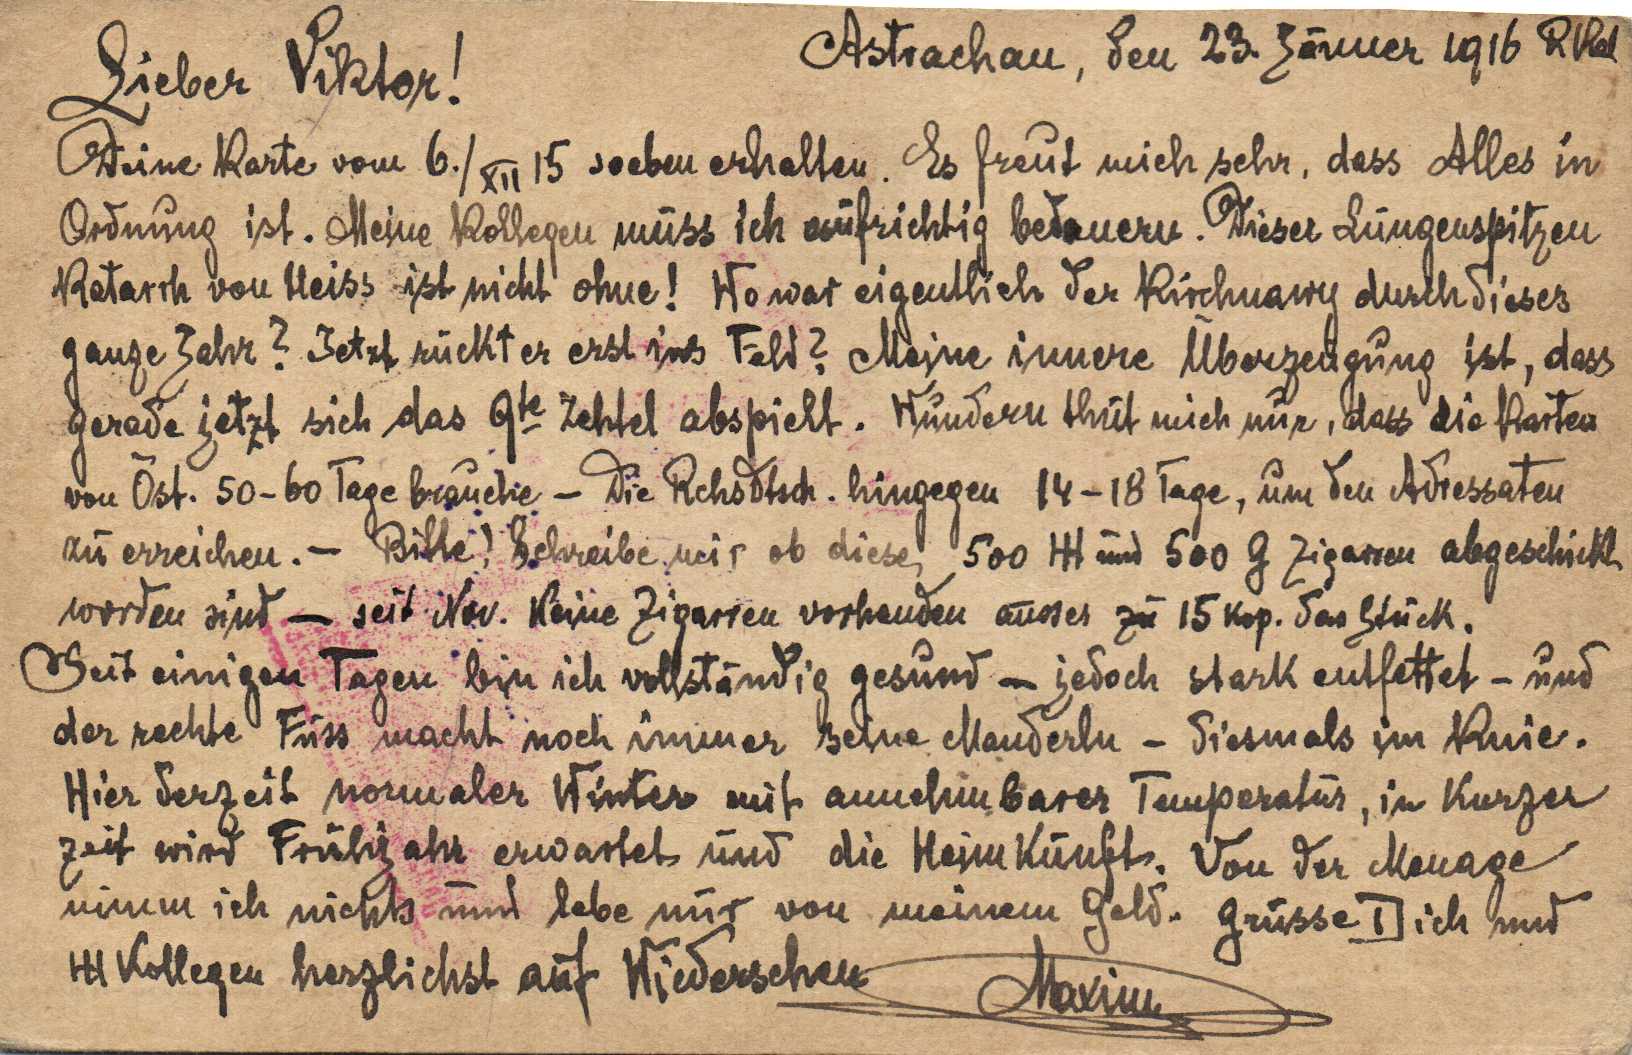 Astrachan, den 23. Jänner 1916
Lieber Viktor!
Deine Karte vom 6./XII 15 soeben erhalten. Es freut mich sehr, dass Alles in
Ordnung ist. Meine Kollegen muss ich aufrichtig bedauern. Dieser Lungenspitzen
Katarrh von Weiss ist nicht ohne! Wo war eigentlich der Kirchnawy durch dieses
ganze Jahr? Jetzt rückt er erst ins Feld? Meine innere Überzeugung ist, dass
gerade jetzt sich das 9te Zehtel abspielt. Wundern thut mich nur, dass die Karten
von Öst. 50-60 Tage brauche – Die Rchsdtsch. hingegen 14-18 Tage, um den Adressaten
zu erreichen. – Bitte! Schreibe mir ob diese 500 und 500 G Zigarren abgeschickt
worden sind – seit Nov. keine Zigarren vorhanden ausser zu 15 Kop. das Stück.
Seit einigen Tagen bin ich vollständig gesund – jedoch stark entfettet – und
der rechte Fuss macht noch immer seine Manderln – diesmals im Knie.
Hier derzeit normaler Winter mit annehmbarer Temperatur, in kurzer
Zeit wird Frühjahr erwartet und die Heimkunft. Von der Menage
nimm ich nichts und lebe nur von meinem Geld. Grüsse ich und
Kollegen herzlichst auf Wiedersehen Maxim